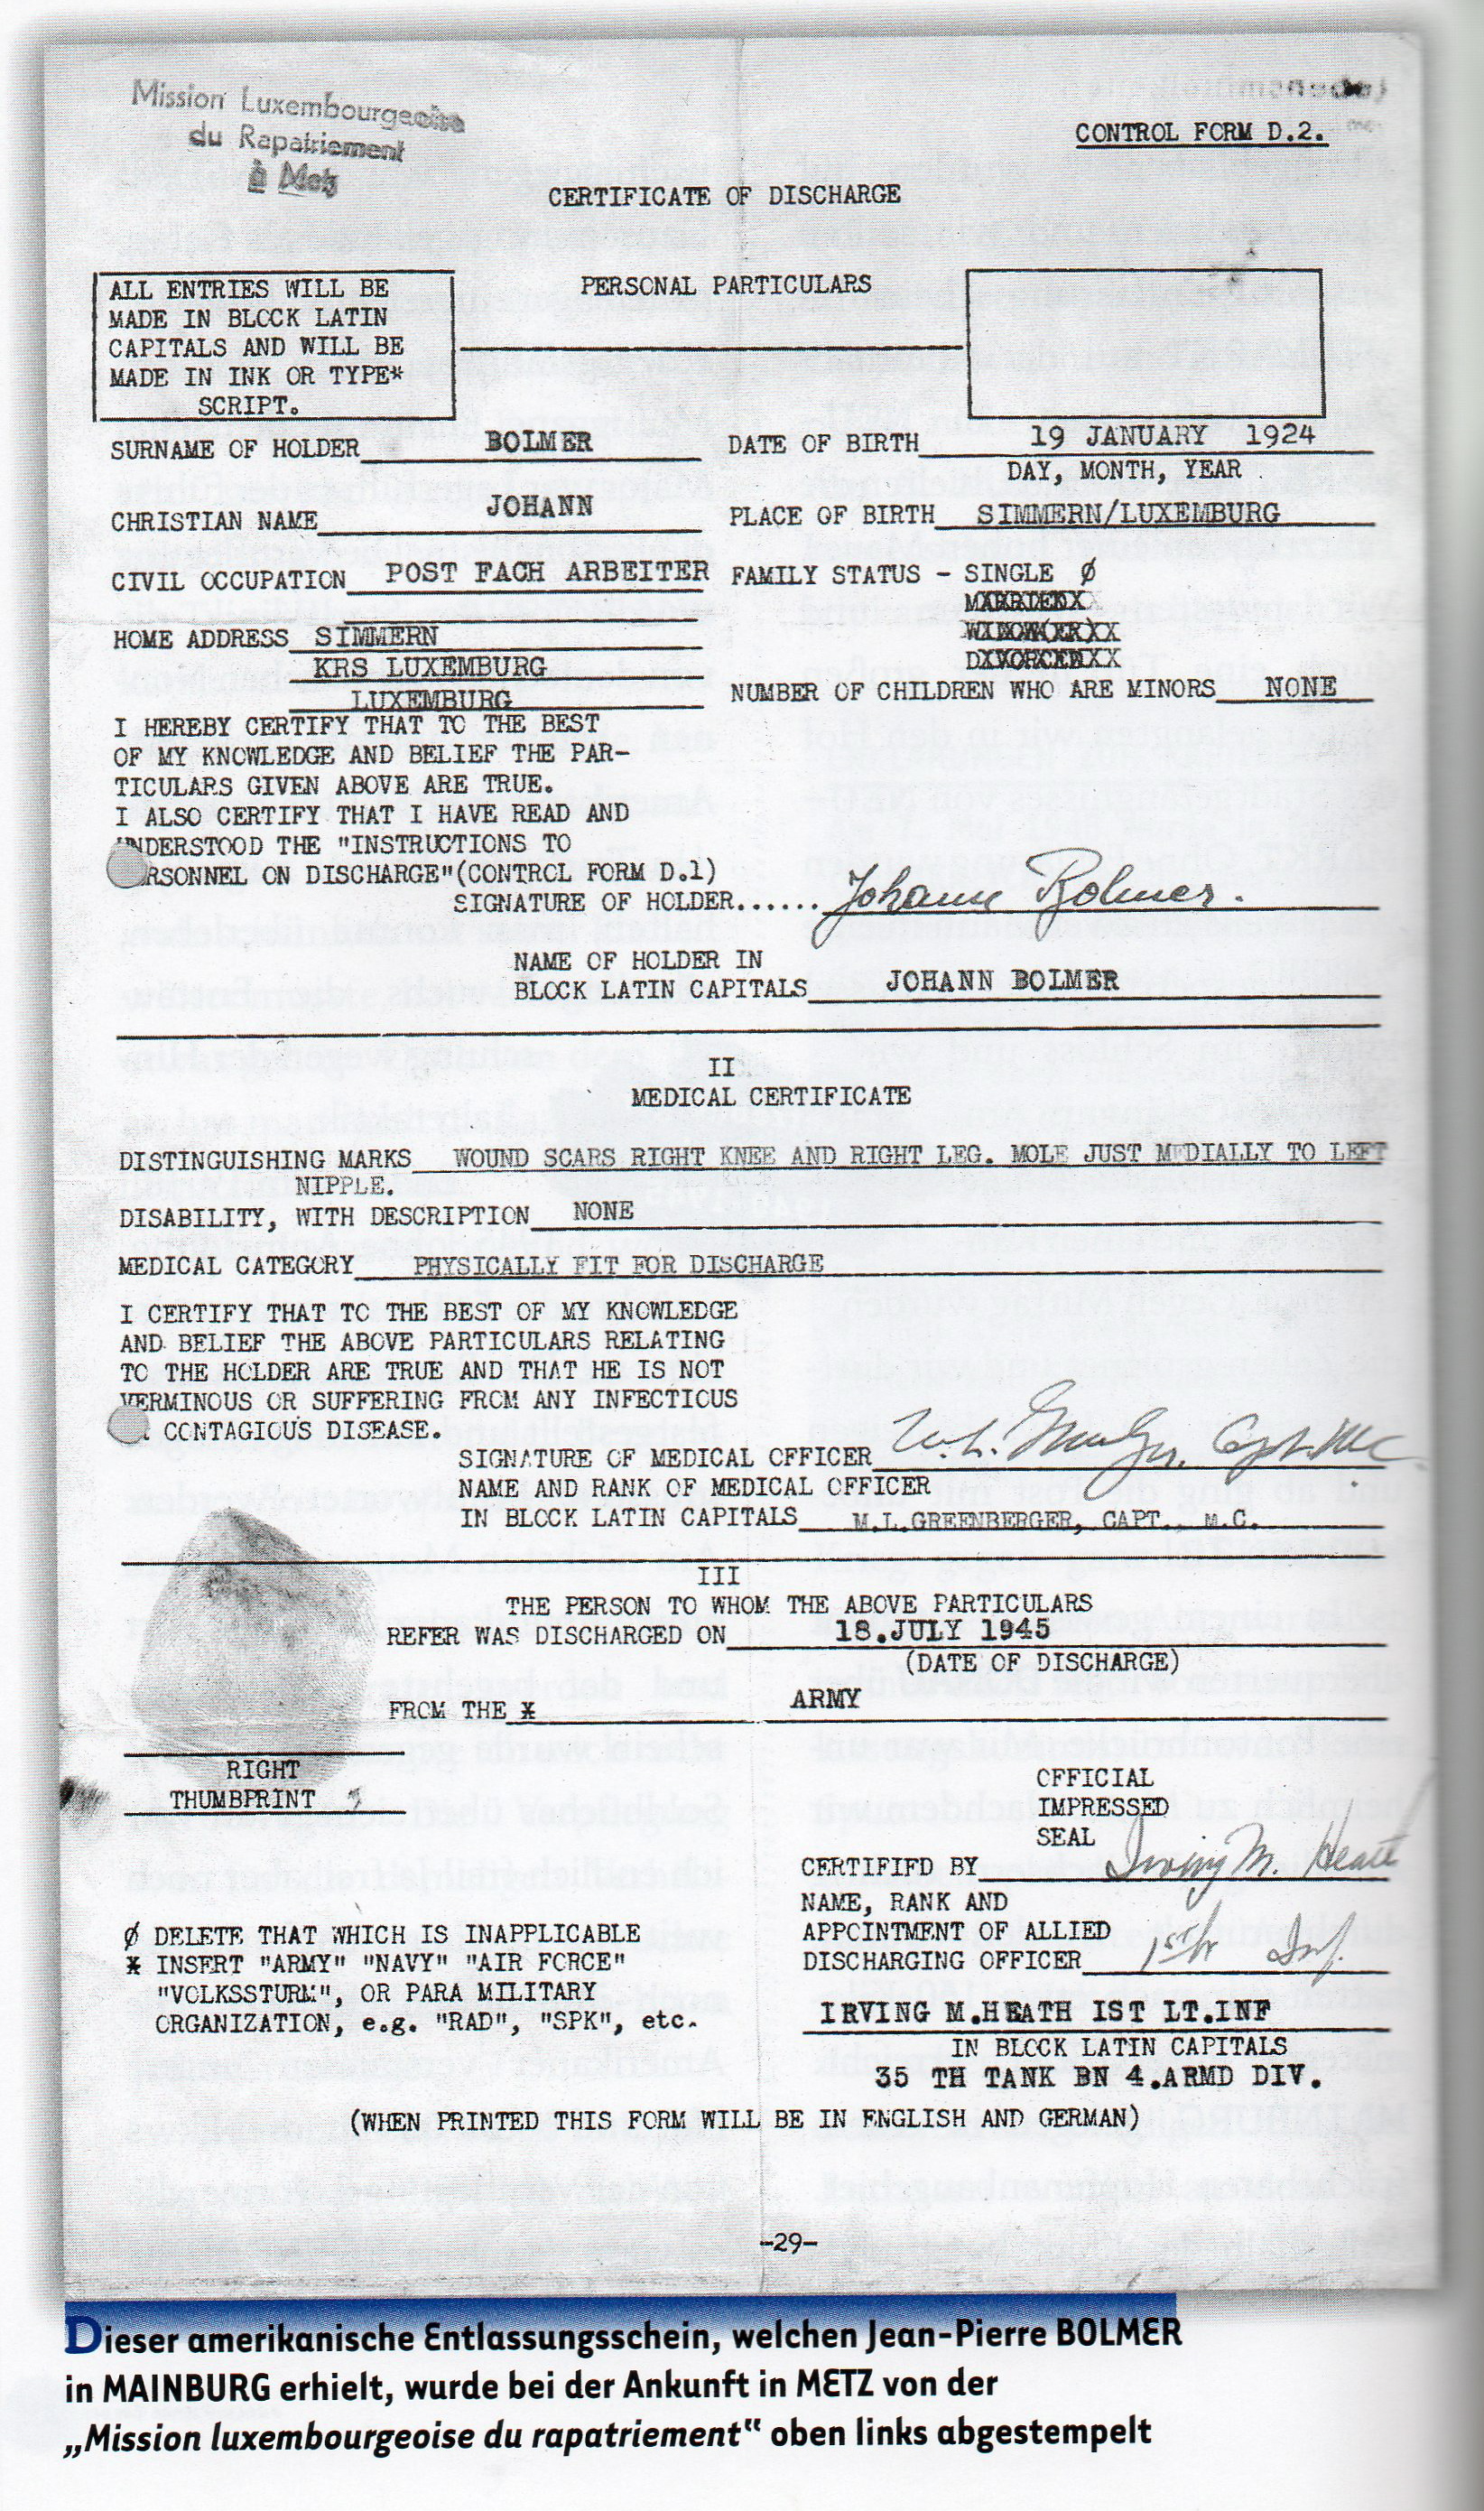 Mission Luxembourgeoise
du Rapatriement
à Metz
CONTROL FORM D.2.
CERTIFICATE OF DISCHARGE
ALL ENTRIES WILL BE
MADE IN BLOCK LATIN
CAPITALS AND WILL BE
MADE IN INK OR TYPE*
SCRIPT.
PERSONAL PARTICULARS
SURNAME OF HOLDER BOLMER
DATE OF BIRTH 19 JANUARY 1924
DAY, MONTH, YEAR
CHRISTIAN NAME JOHANN
PLACE OF BIRTH SIMMERN/LUXEMBURG
CIVIL OCCUPATION POST FACH ARBEITER
FAMILY STATUS - SINGLE Ø
MARRIED
WIDOW(ER)
DIVORCED
HOME ADDRESS SIMMERN
KRS LUXEMBURG
LUXEMBURG
NUMBER OF CHILDREN WHO ARE MINORS NONE
I HEREBY CERTIFY THAT TO THE BEST
OF MY KNOWLEDGE AND BELIEF THE PAR-
TICULARS GIVEN ABOVE ARE TRUE.
I ALSO CERTIFY THAT I HAVE READ AND
UNDERSTOOD THE "INSTRUCTIONS TO
RSONNEL ON DISCHARGE"(CONTROL FORM D.1)
SIGNATURE OF HOLDER...... Johann Bolmer.
NAME OF HOLDER IN
BLOCK LATIN CAPITALS JOHANN BOLMER
II
MEDICAL CERTIFICATE
DISTINGUISHING MARKS WOUND SCARS RIGHT KNEE AND RIGHT LEG. MOLE JUST MEDIALLY TO LEFT
NIPPLE.
DISABILITY, WITH DESCRIPTION NONE
MEDICAL CATEGORY PHYSICALLY FIT FOR DISCHARGE
I CERTIFY THAT TO THE BEST OF MY KNOWLEDGE
AND BELIEF THE ABOVE PARTICULARS RELATING
TO THE HOLDER ARE TRUE AND THAT HE IS NOT
VERMINOUS OR SUFFERING FROM ANY INFECTIOUS
CONTAGIOUS DISEASE.
SIGNATURE OF MEDICAL OFFICER Capt. MC
NAME AND RANK OF MEDICAL OFFICER
IN BLOCK LATIN CAPITALS M.L.GREENBERGER, CAPT., M.C.
III
THE PERSON TO WHOM THE ABOVE PARTICULARS
REFER WAS DISCHARGED ON 18.JULY 1945
(DATE OF DISCHARGE)
FROM THE * ARMY
RIGHT
THUMBPRINT
OFFICIAL
IMPRESSED
SEAL
CERTIFIED BY Irving M. Heath
NAME, RANK AND
APPOINTMENT OF ALLIED
DISCHARGING OFFICER 1st Lt Inf.
IRVING M.HEATH IST LT.INF
IN BLOCK LATIN CAPITALS
35 TH TANK BN 4.ARMD DIV.
Ø DELETE THAT WHICH IS INAPPLICABLE
* INSERT "ARMY" "NAVY" "AIR FORCE"
"VOLKSSTURM", OR PARA MILITARY
ORGANIZATION, e.g. "RAD", "SPK", etc.
(WHEN PRINTED THIS FORM WILL BE IN ENGLISH AND GERMAN)
-29-
Dieser amerikanische Entlassungsschein, welchen Jean-Pierre BOLMER
in MAINBURG erhielt, wurde bei der Ankunft in METZ von der
„Mission luxembourgeoise du rapatriement" oben links abgestempelt